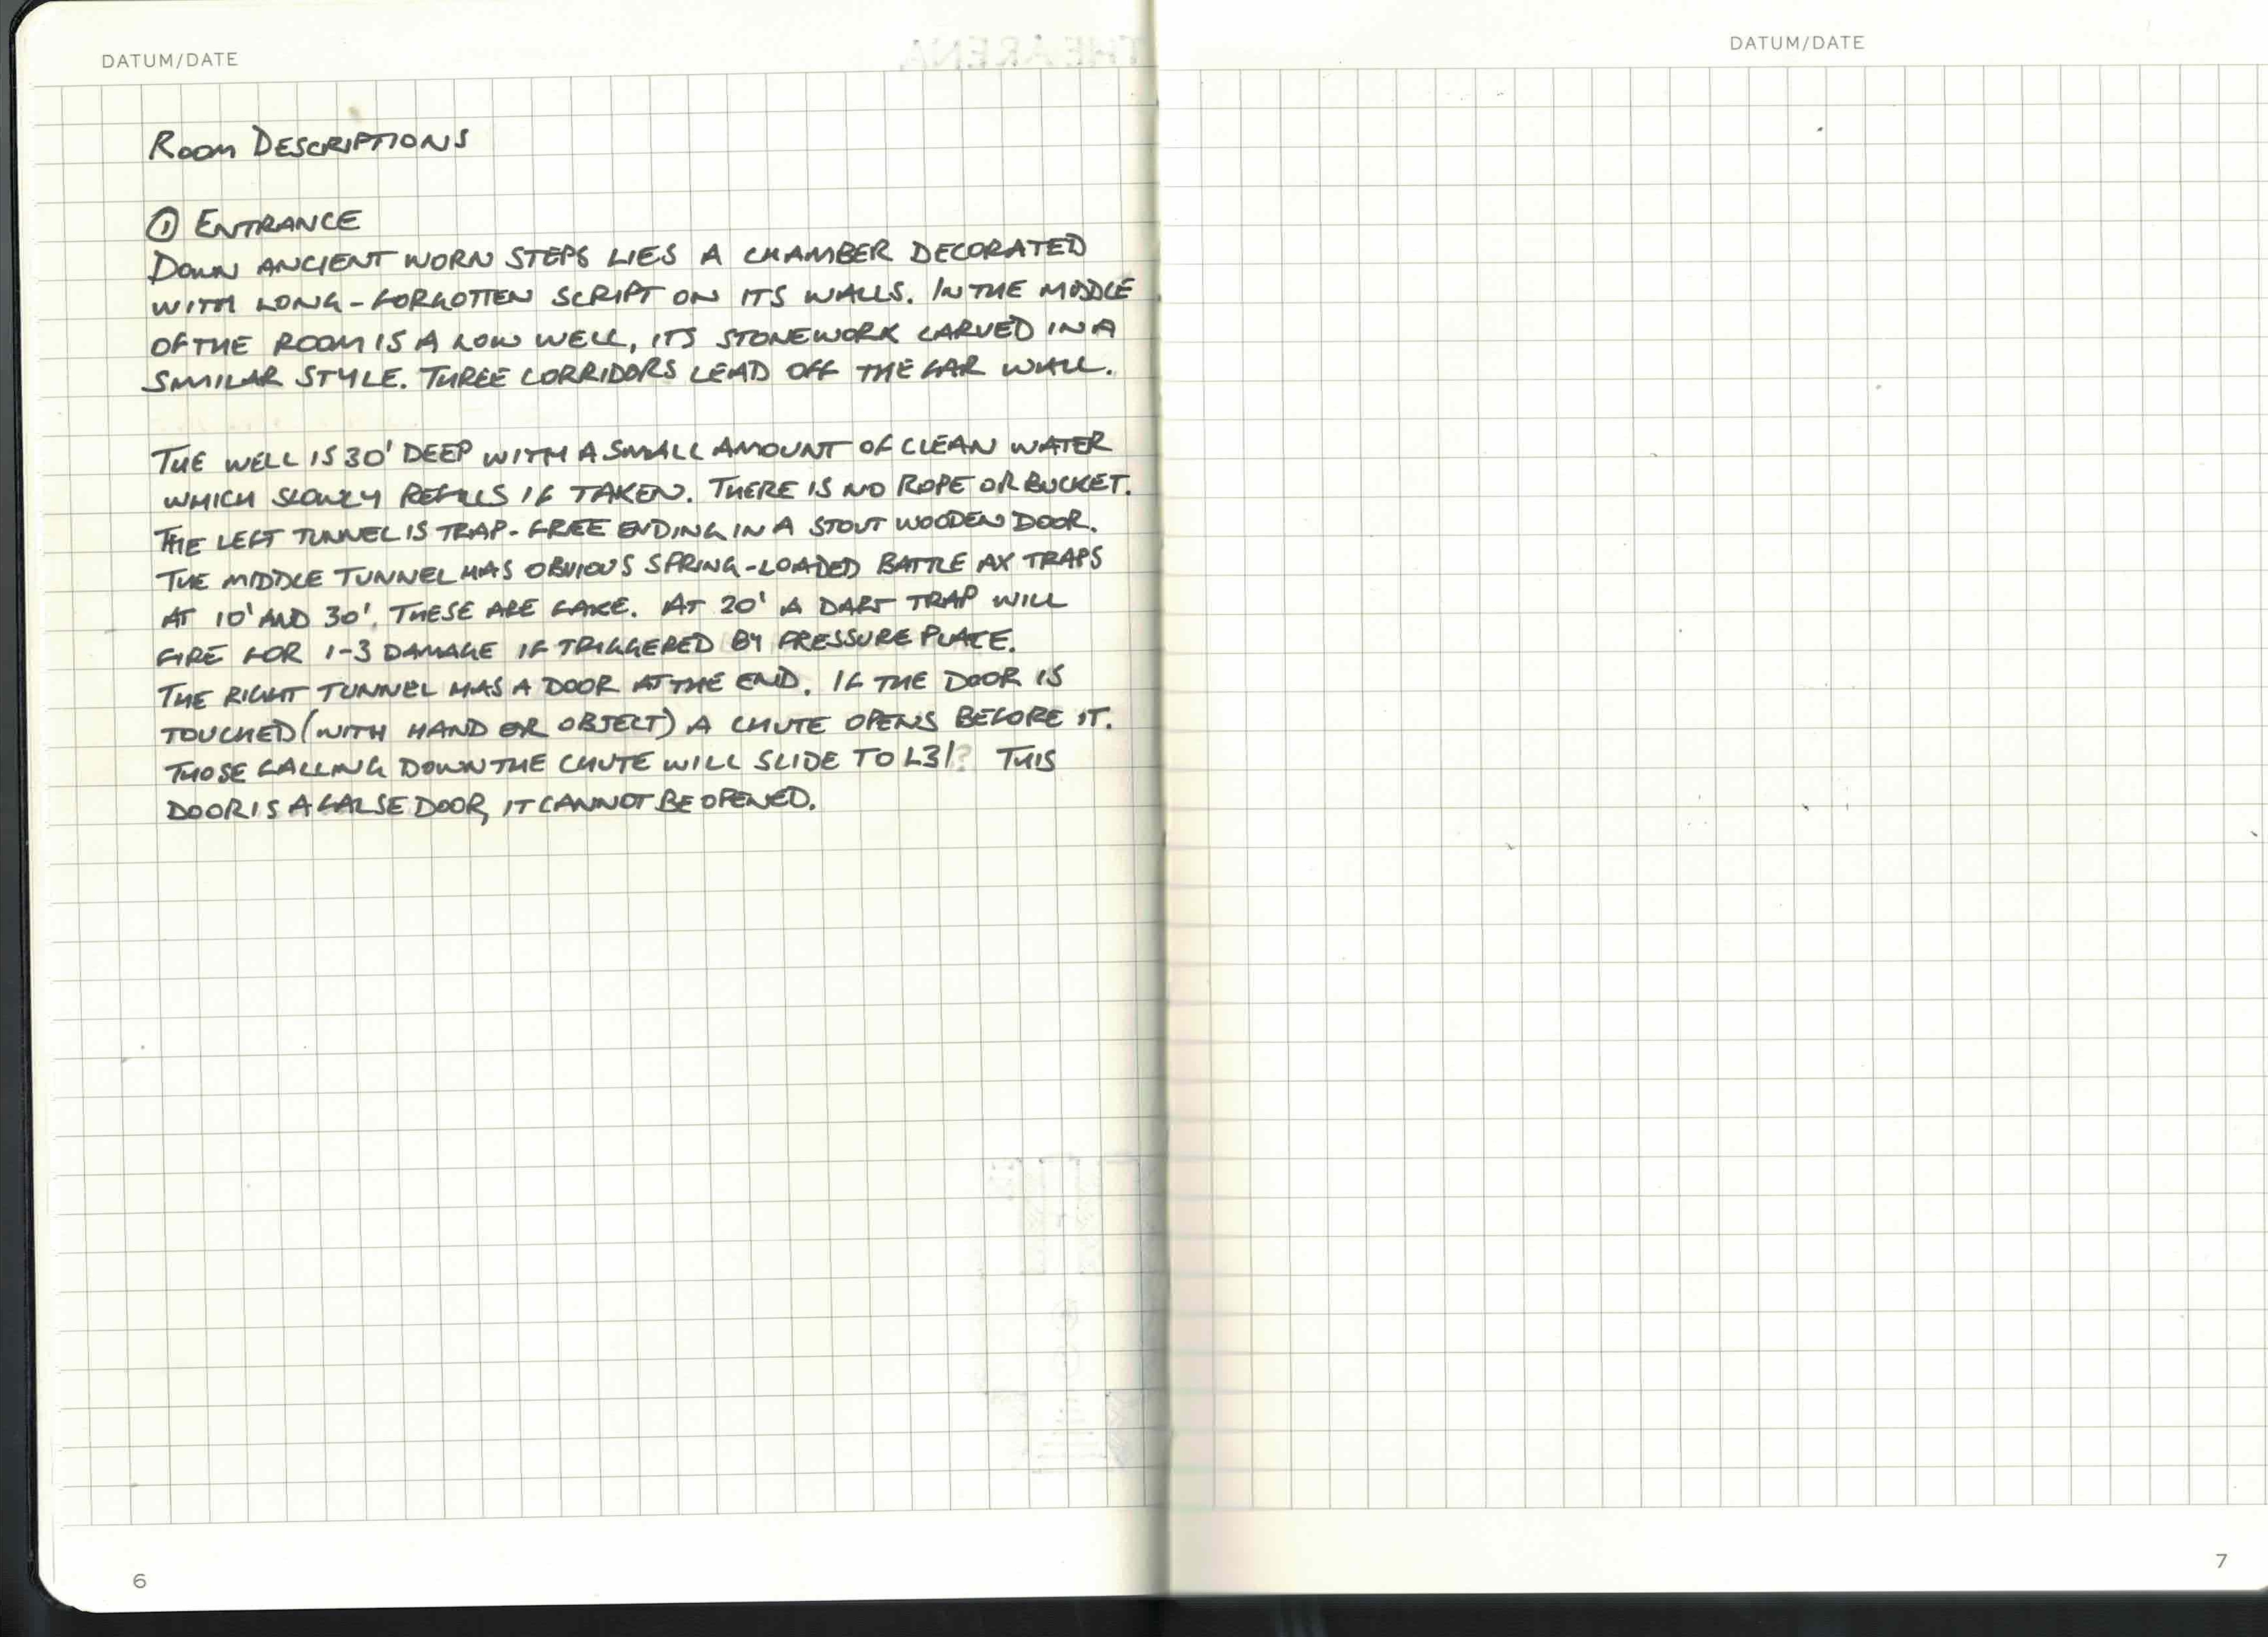 DATUM/DATE
ROOM DESCRIPTIONS
① ENTRANCE
DOWN ANCIENT WORN STEPS LIES A CHAMBER DECORATED
WITH LONG-FORGOTTEN SCRIPT ON ITS WALLS. IN THE MIDDLE
OF THE ROOM IS A LOW WELL, ITS STONEWORK CARVED IN A
SIMILAR STYLE. THREE CORRIDORS LEAD OFF THE FAR WALL.
THE WELL IS 30' DEEP WITH A SMALL AMOUNT OF CLEAN WATER
WHICH SLOWLY REFILLS IF TAKEN. THERE IS NO ROPE OR BUCKET.
THE LEFT TUNNEL IS TRAP-FREE ENDING IN A STOUT WOODEN DOOR.
THE MIDDLE TUNNEL HAS OBVIOUS SPRING-LOADED BATTLE AX TRAPS
AT 10' AND 30'. THESE ARE FAKE. AT 20' A DART TRAP WILL
FIRE FOR 1-3 DAMAGE IF TRIGGERED BY PRESSURE PLATE.
THE RIGHT TUNNEL HAS A DOOR AT THE END. IF THE DOOR IS
TOUCHED (WITH HAND OR OBJECT) A CHUTE OPENS BEFORE IT.
THOSE FALLING DOWN THE CHUTE WILL SLIDE TO L3/? THIS
DOOR IS A FALSE DOOR, IT CANNOT BE OPENED.
6
DATUM/DATE
7